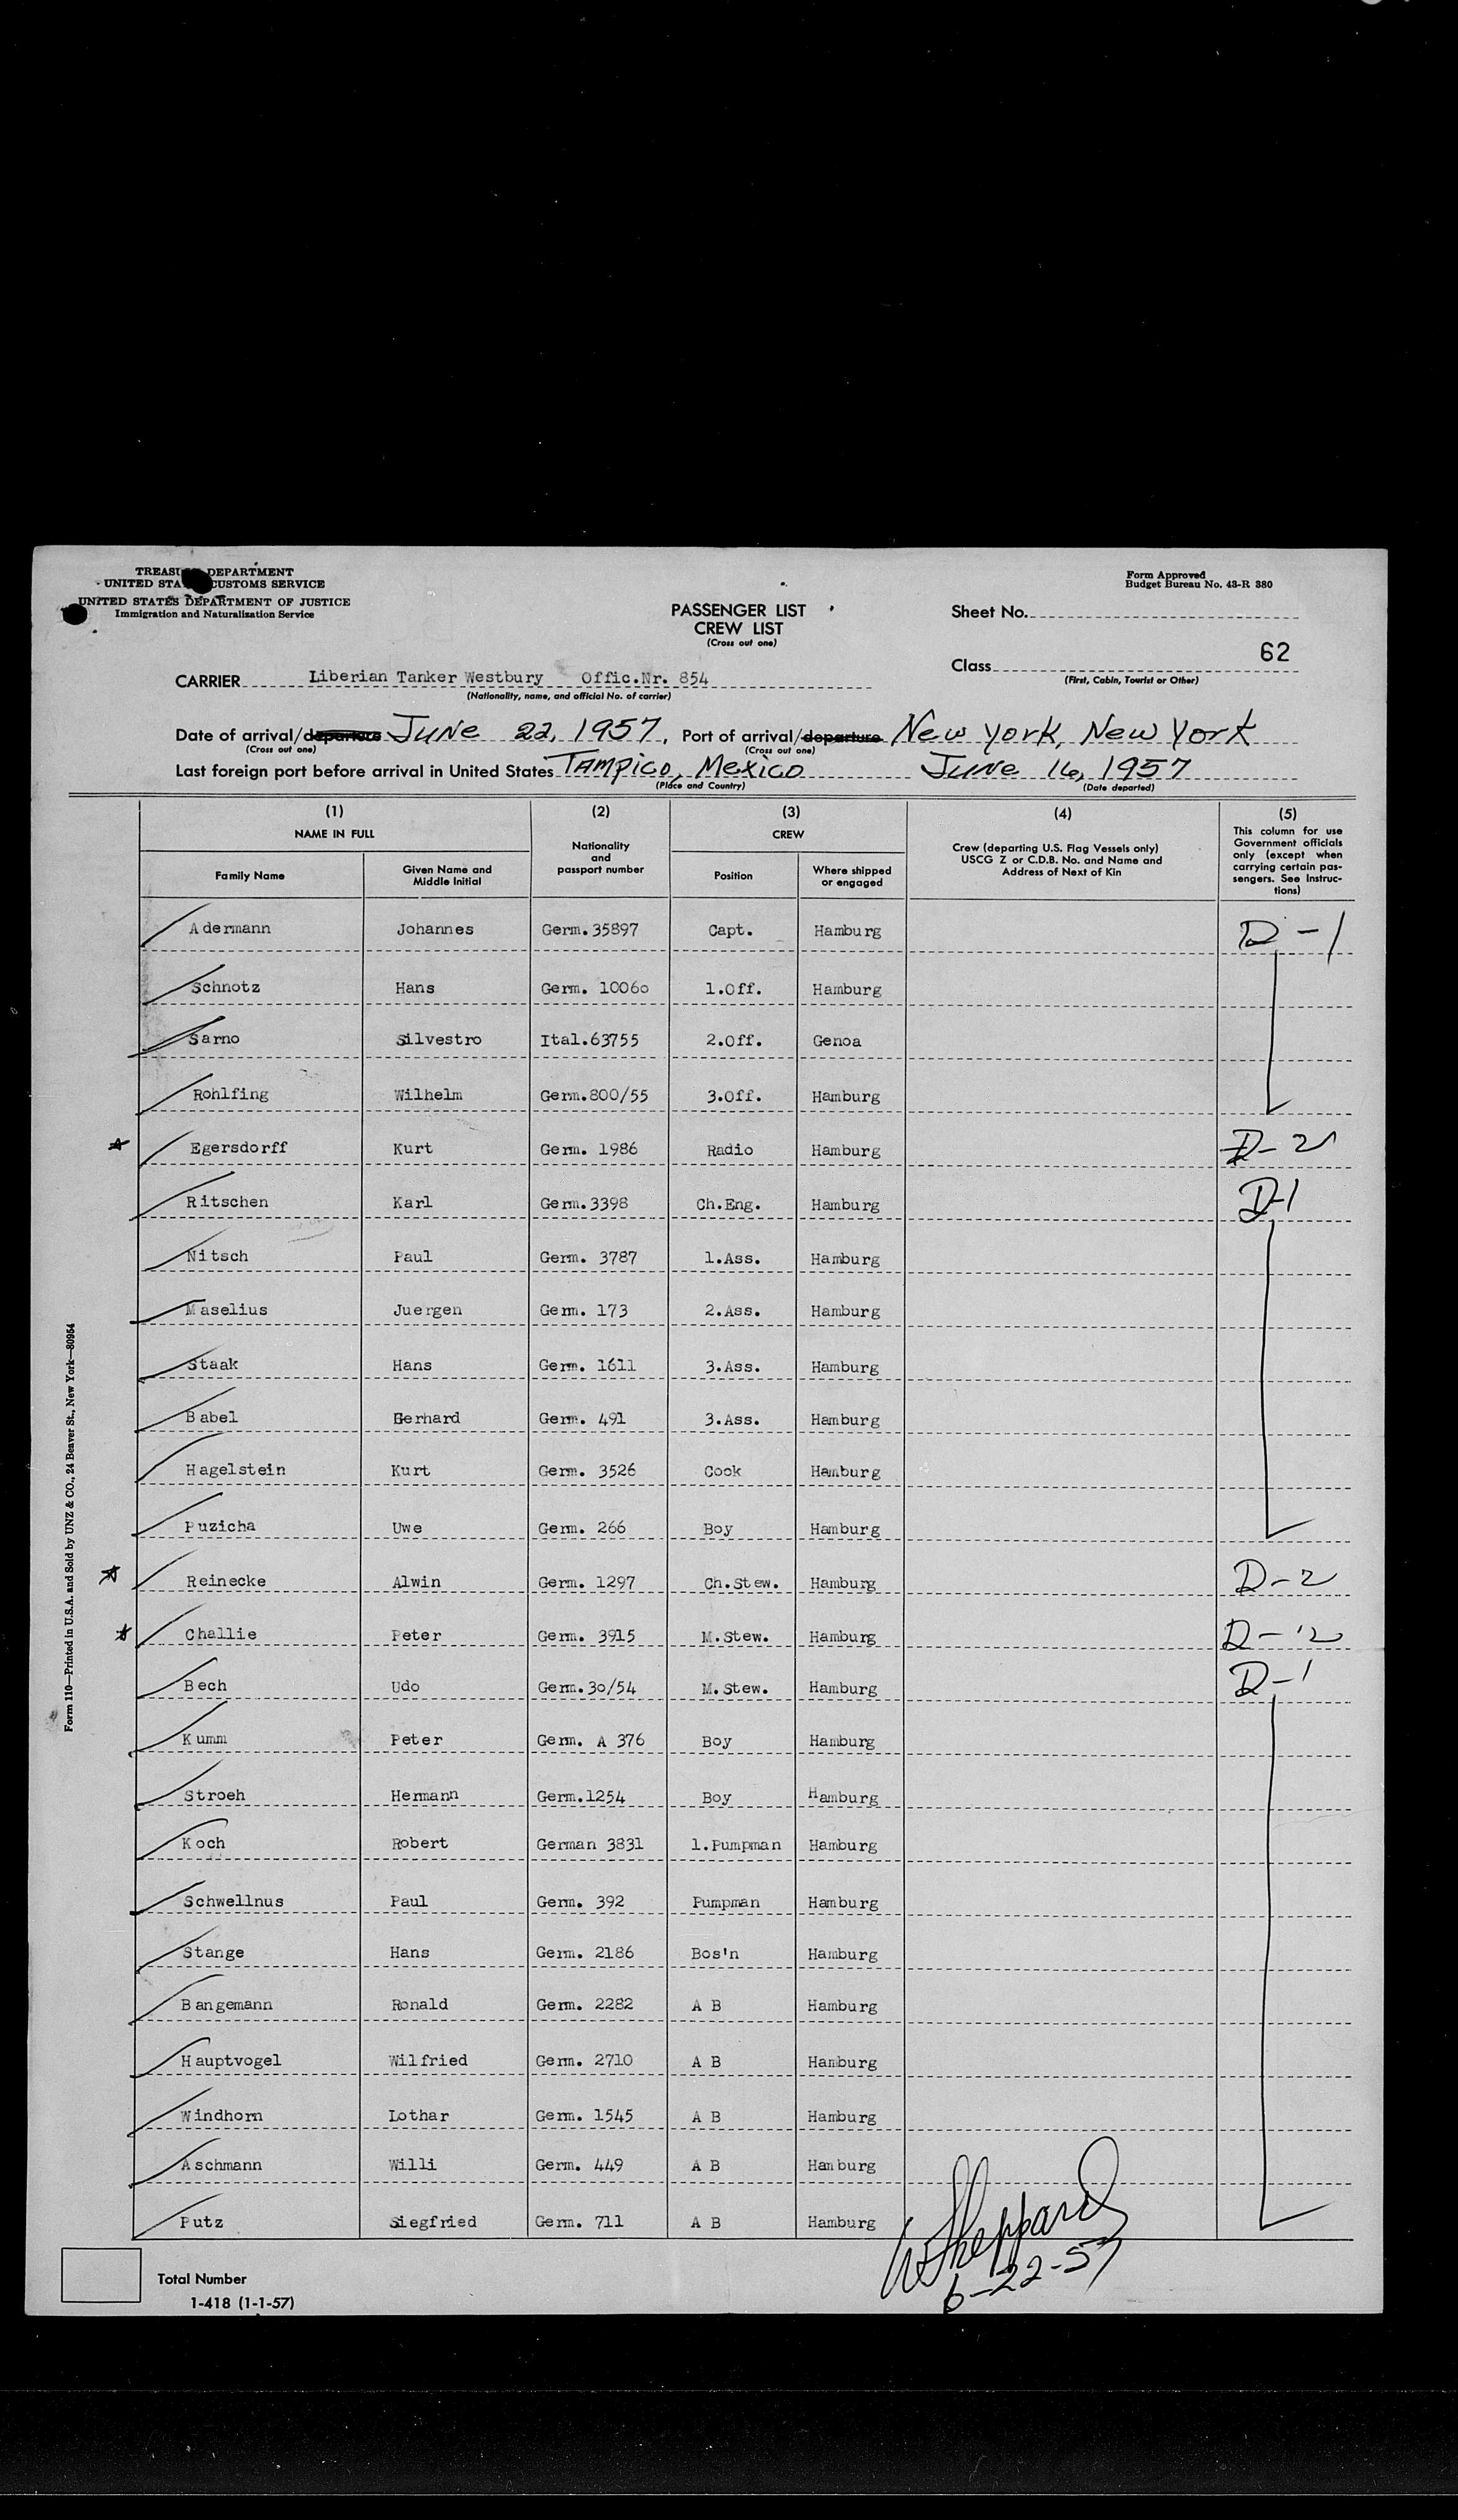 TREASURY DEPARTMENT
UNITED STATES CUSTOMS SERVICE
UNITED STATES DEPARTMENT OF JUSTICE
Immigration and Naturalization Service
Form Approved
Budget Bureau No. 43-R 380
PASSENGER LIST
CREW LIST
(Cross out one)
Sheet No.
62
Class
(First, Cabin, Tourist or Other)
CARRIER Liberian Tanker Westbury Offic.Nr. 854
(Nationality, name, and official No. of carrier)
Date of arrival/departure June 22, 1957, Port of arrival/departure New York, New York
(Cross out one) (Cross out one)
Last foreign port before arrival in United States Tampico, Mexico June 16, 1957
(Place and Country) (Date departed)
(1) (2) (3) (4) (5)
NAME IN FULL
Family Name
Given Name and Middle Initial
Nationality and passport number
CREW
Position
Where shipped or engaged
Crew (departing U.S. Flag Vessels only)
USCG Z or C.D.B. No. and Name and
Address of Next of Kin
This column for use
Government officials
only (except when
carrying certain pas-
sengers. See Instruc-
tions)
Adermann Johannes Germ.35897 Capt. Hamburg D-1
Schnotz Hans Germ. 10060 1.Off. Hamburg
Sarno Silvestro Ital.63755 2.Off. Genoa
Rohlfing Wilhelm Germ.800/55 3.Off. Hamburg
Egersdorff Kurt Germ. 1986 Radio Hamburg D-2
Ritschen Karl Germ.3398 Ch.Eng. Hamburg D-1
Nitsch Paul Germ. 3787 1.Ass. Hamburg
Maselius Juergen Germ. 173 2.Ass. Hamburg
Staak Hans Germ. 1611 3.Ass. Hamburg
Babel Gerhard Germ. 491 3.Ass. Hamburg
Hagelstein Kurt Germ. 3526 Cook Hamburg
Puzicha Uwe Germ. 266 Boy Hamburg
Reinecke Alwin Germ. 1297 Ch.Stew. Hamburg D-2
Challie Peter Germ. 3915 M.Stew. Hamburg D-2
Bech Udo Germ.30/54 M.Stew. Hamburg D-1
Kumm Peter Germ. A 376 Boy Hamburg
Stroeh Hermann Germ.1254 Boy Hamburg
Koch Robert German 3831 1.Pumpman Hamburg
Schwellnus Paul Germ. 392 Pumpman Hamburg
Stange Hans Germ. 2186 Bos'n Hamburg
Bangemann Ronald Germ. 2282 A B Hamburg
Hauptvogel Wilfried Germ. 2710 A B Hamburg
Windhorn Lothar Germ. 1545 A B Hamburg
Aschmann Willi Germ. 449 A B Hamburg
Putz Siegfried Germ. 711 A B Hamburg
W Sheppard
6-22-57
Total Number
1-418 (1-1-57)
Form 110—Printed in U.S.A. and Sold by UNZ & CO., 24 Beaver St., New York—80954